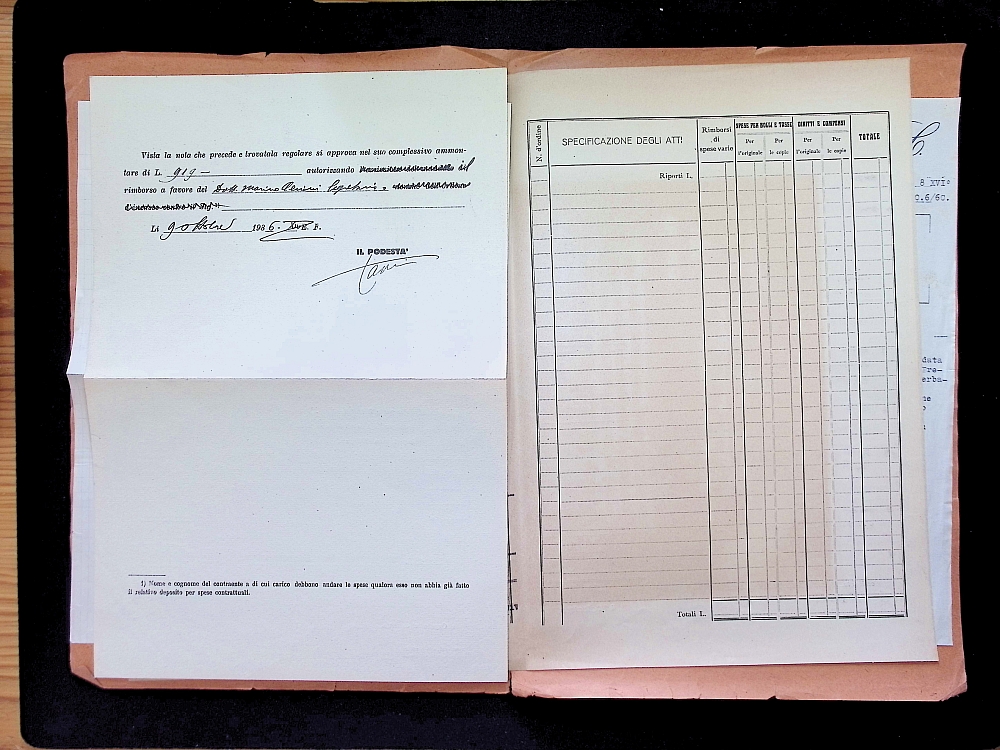 Vista la nota che precede e trovatala regolare si approva nel suo complessivo ammon-
tare di L. 919 — autorizzando il
rimborso a favore del Dott. Marino
Li 9 ottobre 1936. XIV E. F.
IL PODESTA'
1) Nome e cognome del contraente a di cui carico debbono andare le spese qualora esso non abbia già fatto
il relativo deposito per spese contrattuali.
N. d'ordine
SPECIFICAZIONE DEGLI ATTI
Rimborsi
di
spese varie
SPESE PER BOLLI E TASSE
Per
l'originale
Per
le copie
DIRITTI E COMPENSI
Per
l'originale
Per
le copie
TOTALE
Riporti L.
Totali L.
8 XVI°
.6/60.
data
erba-